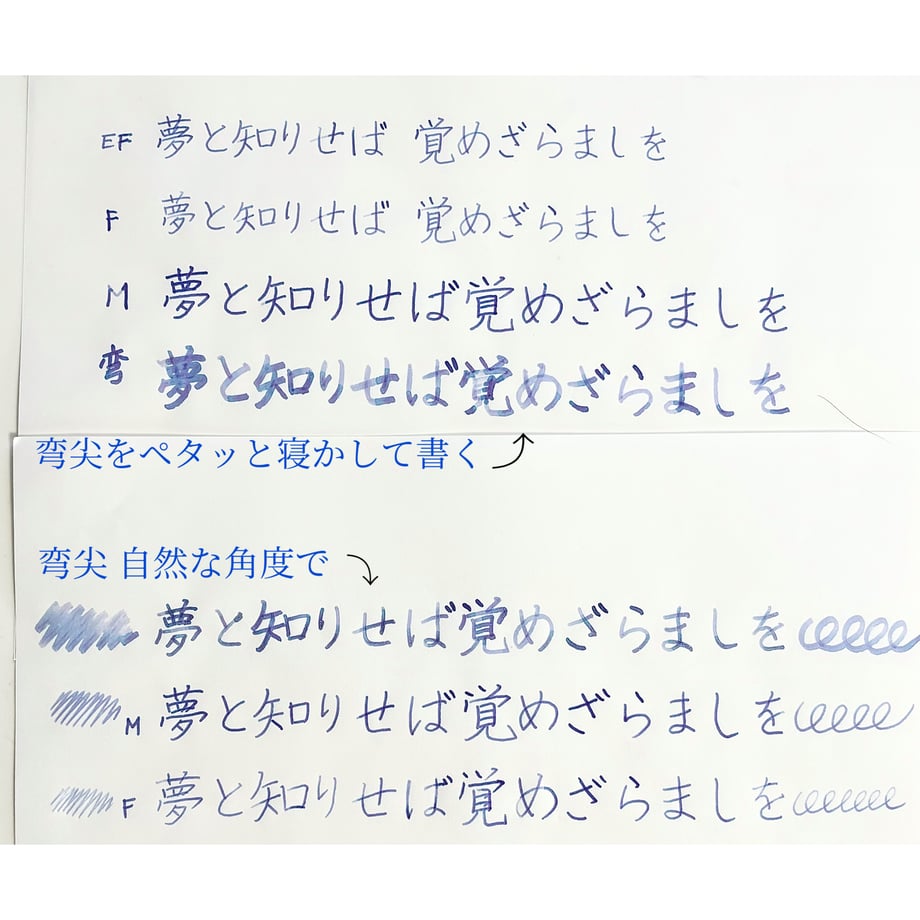 EF 夢と知りせば 覚めざらましを
F 夢と知りせば 覚めざらましを
M 夢と知りせば覚めざらましを
弯 夢と知りせば覚めざらましを
弯尖をペタッと寝かして書く
弯尖 自然な角度で
夢と知りせば覚めざらましを
M 夢と知りせば覚めざらましを
F 夢と知りせば覚めざらましを